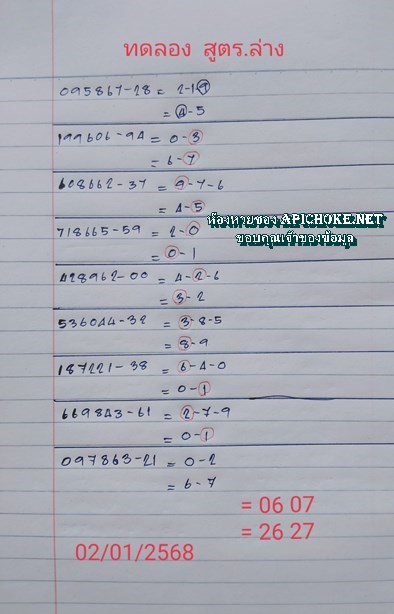 ทดลอง สูตร.ล่าง
095867-28 = 2-1-9
= 4-5
199606-94 = 0-3
= 6-7
608662-37 = 9-7-6
= 4-5
ห้องหวยของ APICHOKE.NET
718665-59 = 2-0
ขอบคุณเจ้าของข้อมูล
= 0-1
428962-00 = 4-2-6
= 3-2
536044-32 = 3-8-5
= 8-9
187221-38 = 6-4-0
= 0-1
669843-61 = 2-7-9
= 0-1
097863-21 = 0-2
= 6-7
= 06 07
= 26 27
02/01/2568